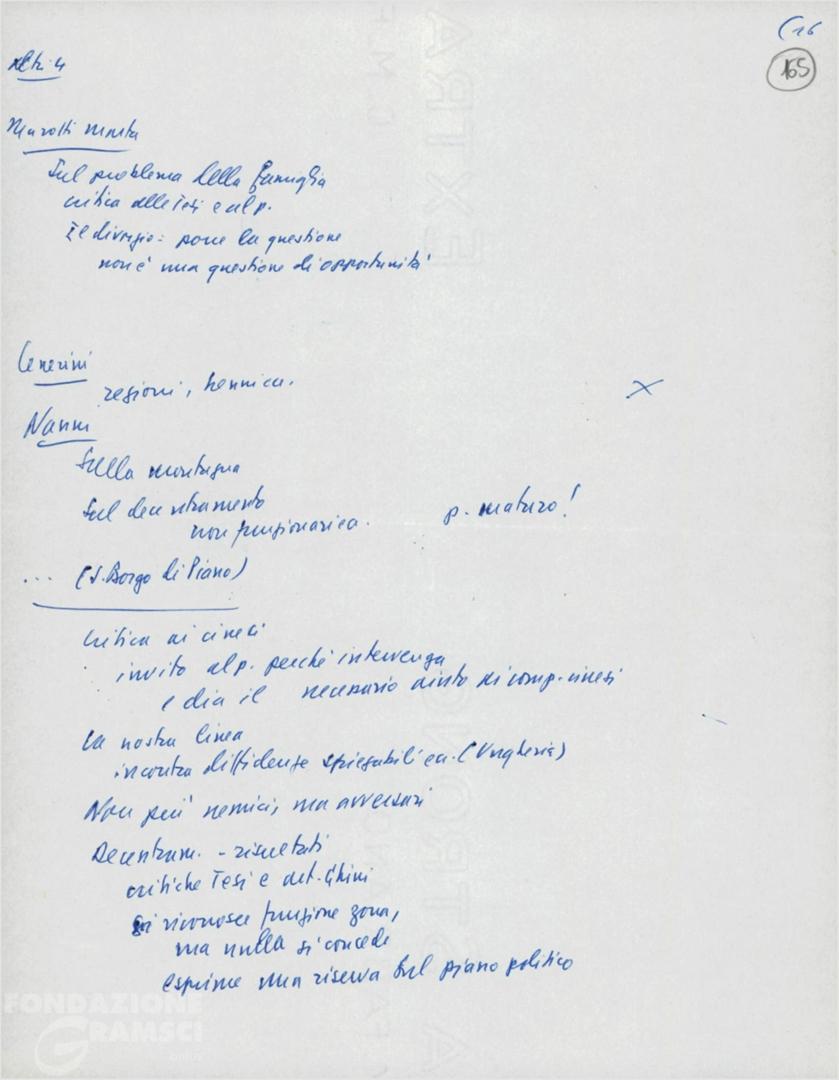 C 16
165
Marotti
Sul problema della famiglia
critica alle Tesi e al p.
Il divorzio: pone la questione
non è una questione di opportunità
Cenerini
regioni,
Nanni
Sulla montagna
Sul decentramento
non funzionarica.
p. maturo!
... (S. Borgo di Piano)
Critica ai cinesi
invito al p. perché intervenga
e dia il necessario aiuto ai comp. cinesi
La nostra linea
incontra diffidenze spiegabili (Ungheria)
Non più nemici, ma avversari
Decentram. - risultati
critiche Tesi e art. Ghini
si riconosce funzione zona,
ma nulla si concede
esprime una riserva sul piano politico
FONDAZIONE
GRAMSCI
onlus